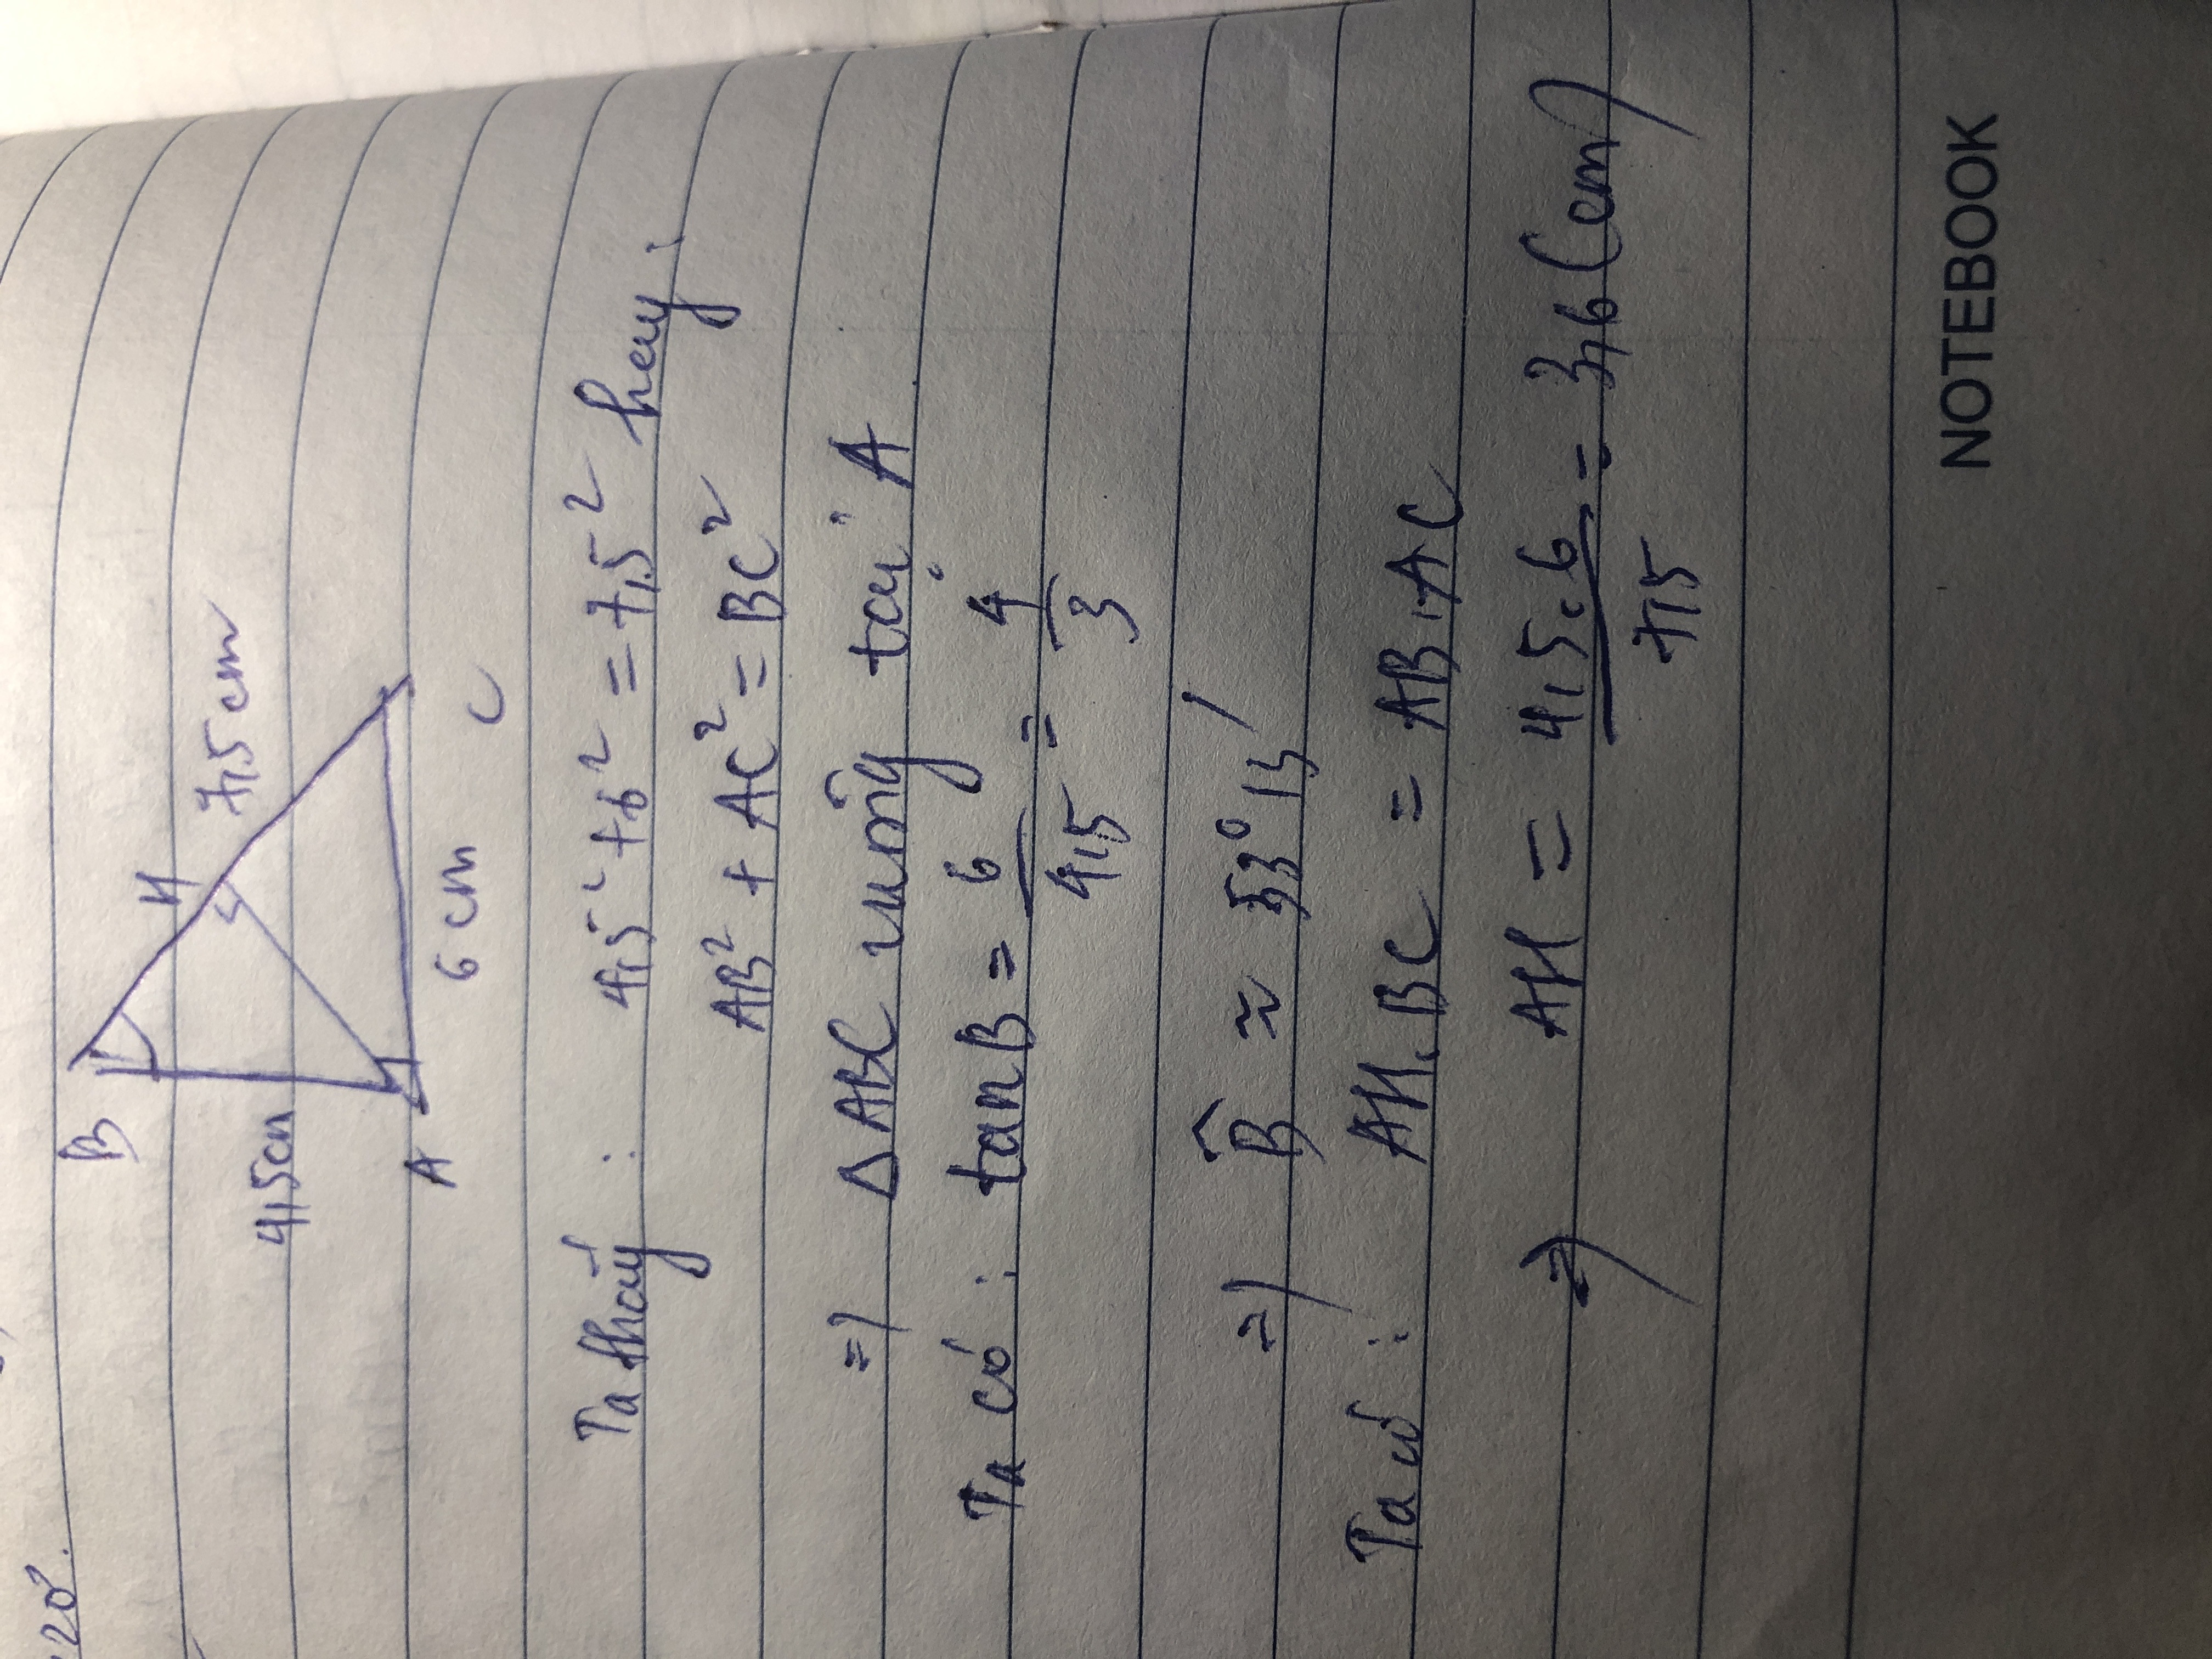 20°.
B
H
7,5cm
4,5cm
A
6 cm
C
Ta thấy : 4,5² + 6² = 7,5² hay :
AB² + AC² = BC²
=> ΔABC vuông tại A
Ta có : tanB = 6/4,5 = 4/3
=> B̂ ≈ 53° 13'
Ta có : AH.BC = AB.AC
=> AH = 4,5.6/7,5 = 3,6 (cm)
NOTEBOOK